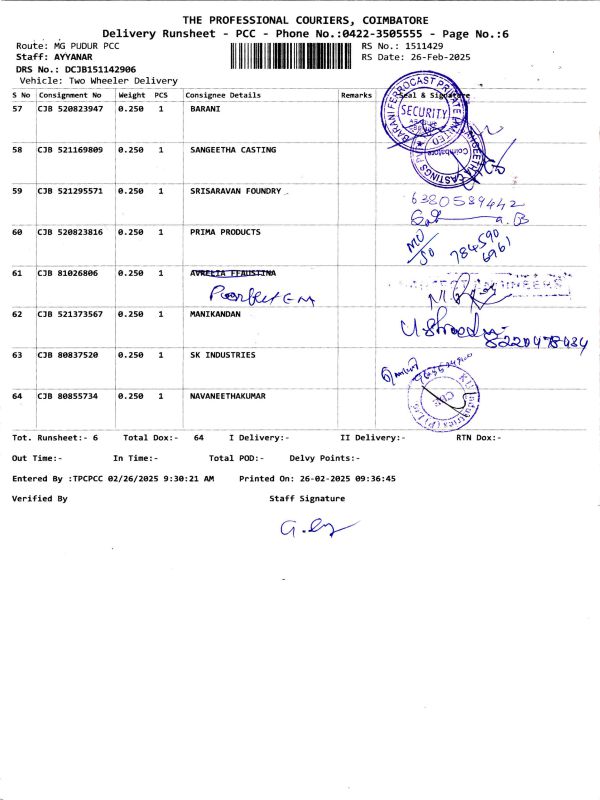 THE PROFESSIONAL COURIERS, COIMBATORE
Delivery Runsheet - PCC - Phone No.:0422-3505555 - Page No.:6
Route: MG PUDUR PCC RS No.: 1511429
Staff: AYYANAR RS Date: 26-Feb-2025
DRS No.: DCJB151142906
Vehicle: Two Wheeler Delivery
S No Consignment No Weight PCS Consignee Details Remarks Seal & Signature
57 CJB 520823947 0.250 1 BARANI
BARANI FERROCAST PRIVATE LIMITED
SECURITY
58 CJB 521169809 0.250 1 SANGEETHA CASTING
Coimbatore
59 CJB 521295571 0.250 1 SRISARAVAN FOUNDRY
6380589442
60 CJB 520823816 0.250 1 PRIMA PRODUCTS
784590
6961
61 CJB 81026806 0.250 1 AVRELIA FFAUSTINA
62 CJB 521373567 0.250 1 MANIKANDAN
8220478434
63 CJB 80837520 0.250 1 SK INDUSTRIES
64 CJB 80855734 0.250 1 NAVANEETHAKUMAR
Tot. Runsheet:- 6 Total Dox:- 64 I Delivery:- II Delivery:- RTN Dox:-
Out Time:- In Time:- Total POD:- Delvy Points:-
Entered By :TPCPCC 02/26/2025 9:30:21 AM Printed On: 26-02-2025 09:36:45
Verified By Staff Signature